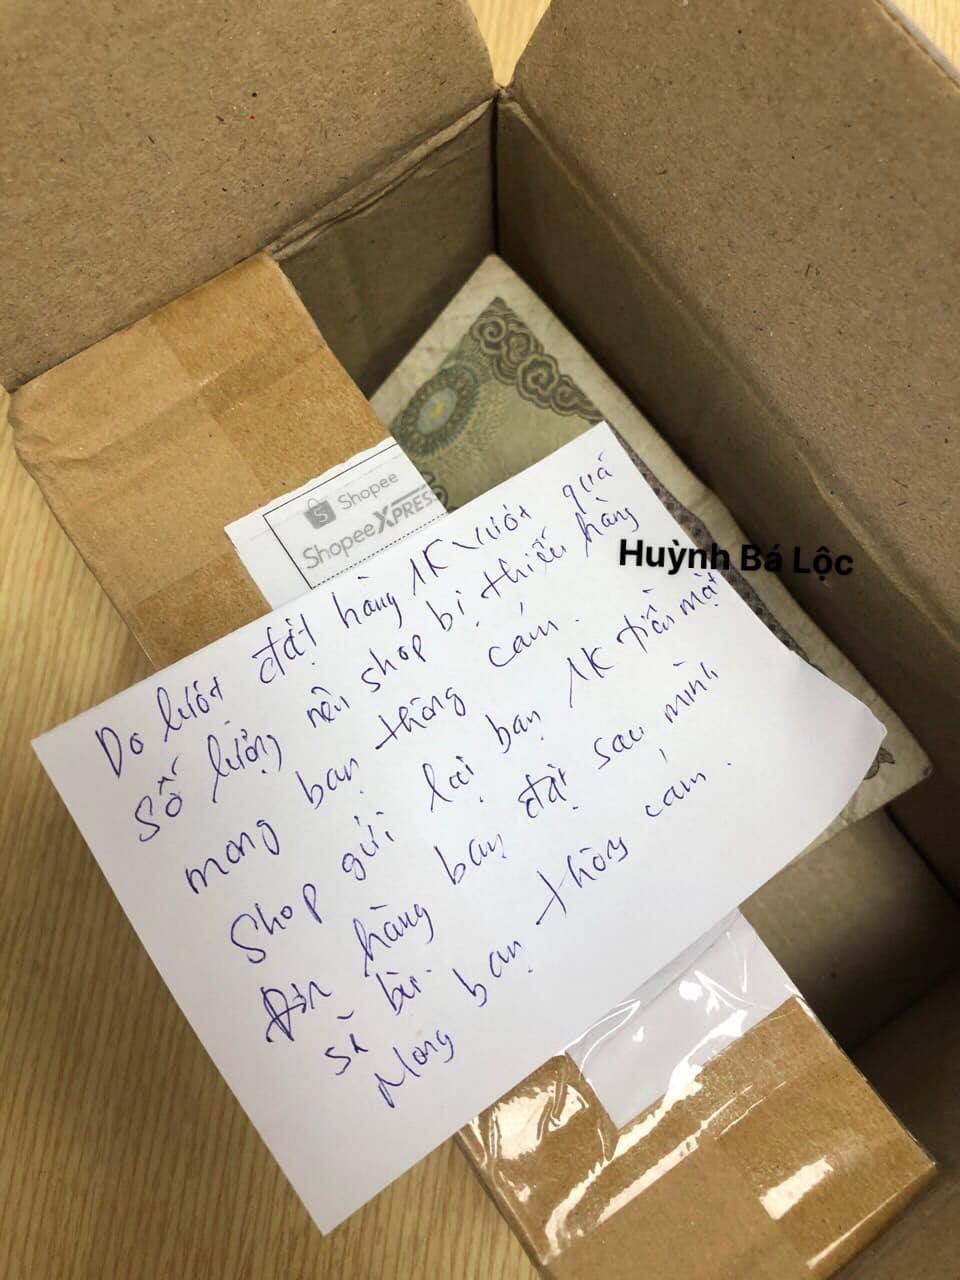 Shopee
Shopee XPRES
Huỳnh Bá Lộc
Do lượt đặt hàng 1K vượt quá
số lượng nên shop bị thiếu hàng
mong bạn thông cảm.
Shop gửi lại bạn 1K tiền mặt
Đơn hàng bạn đặt sau mình
sẽ bù.
Mong bạn thông cảm.